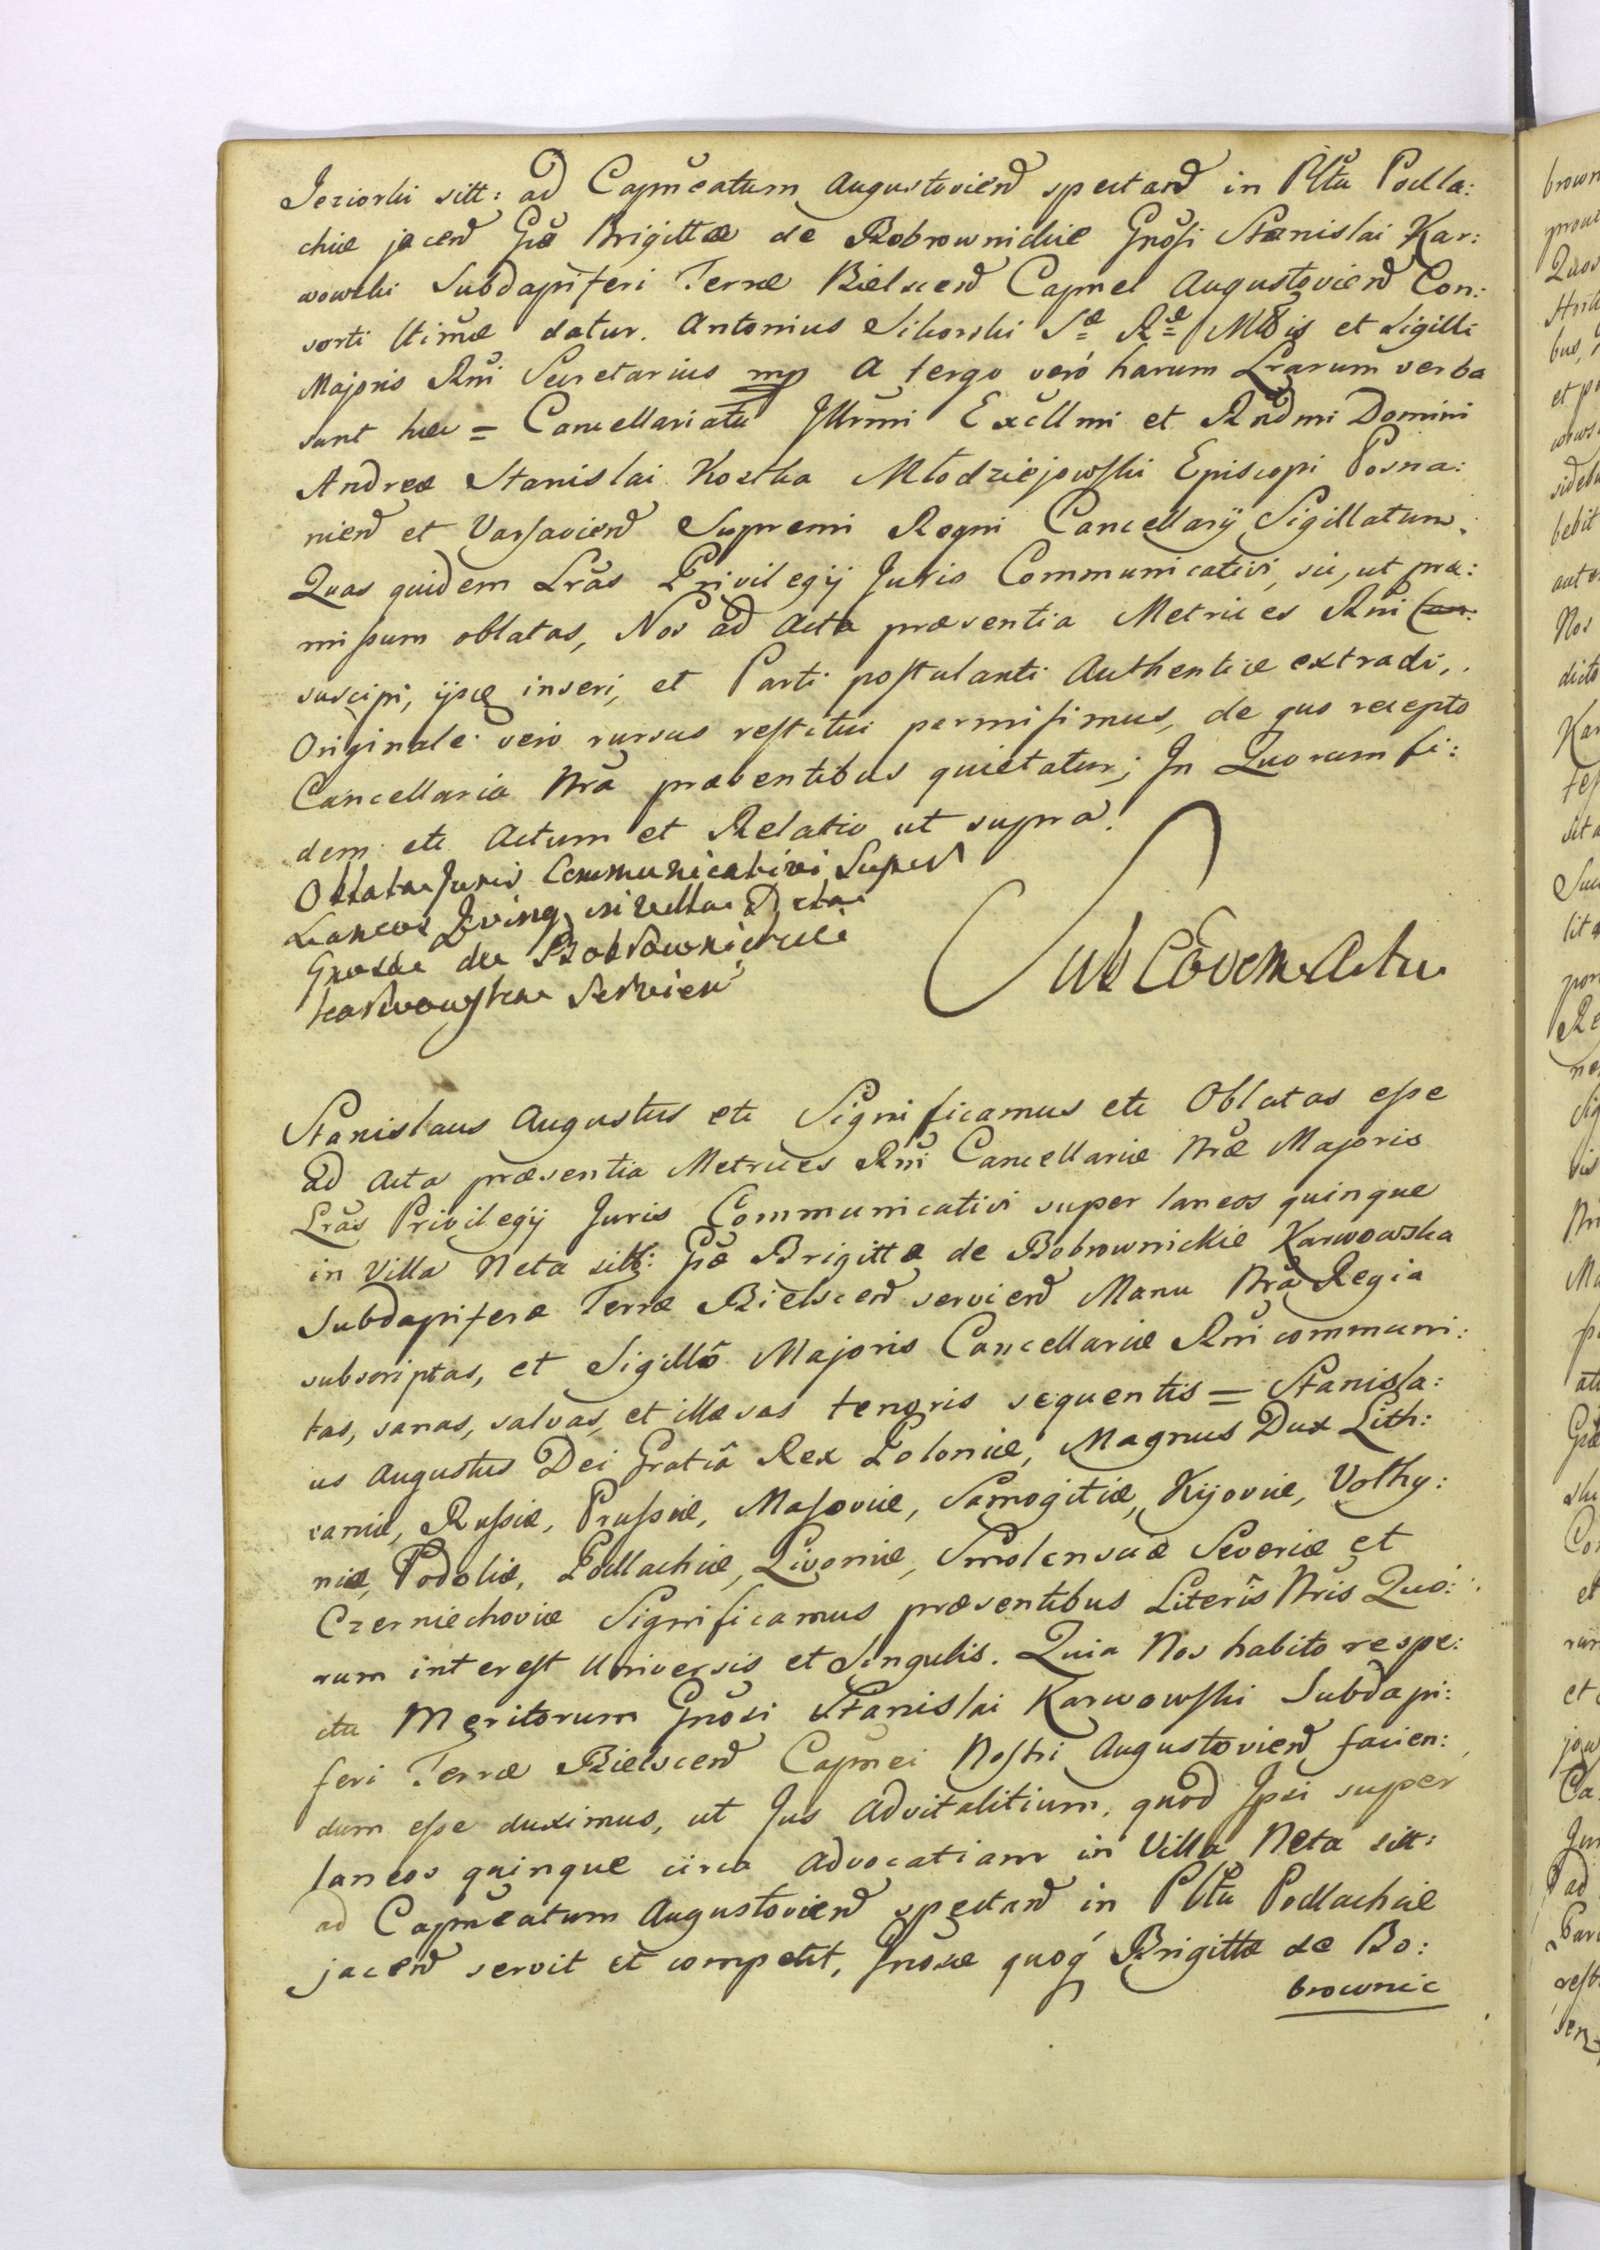 Jeziorki sitt: ad Capm̃eatum Augustovieñ spectañ in Pltũ Podla:
chiæ jaceñ Gñæ Brigittæ de Bobrownickie Gñosi Stanislai Kar:
wowski Subdapiferi Terræ Bielsceñ Capnei Augustovieñ Con:
sorti ltimæ datur. Antonius Sikorski Sæ Ræ Mttis et Sigilli
Majoris Rñi Secretarius mp A tergo veró harum Lrarum verba
sunt hæc = Cancellariatu Jllrmi Excllmi et Rñdmi Domini
Andreæ Stanislai Kostka Młodziejowski Episcopi Posna:
nieñ et Varsavieñ Supremi Regni Cancellarij Sigillatum.
Quas quidem Lrãs Privilegij Juris Communicativi, sic, ut præ:
missum oblatas, Nos ad Acta præsentia Metrices Rñi
suscipi, ijsq inseri, et Parti postulanti Authenticæ extradi,
Originale vero rursus restitui permisimus, de quo recepto
Cancellaria Nrã præsentibus quietatur; Jn Quorum fi:
dem etc Actum et Relatio ut supra.
Oblata Juris Communicativi Super
Laneos Qvinq in Villa Neta
Gnosæ de Bobrownickie
Karwowska Servieñ
Sub Eodem Actu
Stanislaus Augustus etc Significamus etc Oblatas esse
ad Acta præsentia Metrices Rñi Cancellariæ Nræ Majoris
Lrãs Privilegij Juris Communicativi super laneos quinque
in Villa Neta sitt: Gñæ Brigittæ de Bobrownickie Karwowska
Subdapiferæ Terræ Bielsceñ servieñ Manu Nrã Regia
subscriptas, et Sigillô Majoris Cancellariæ Rñi communi:
tas, sanas, salvas, et illæsas tenoris sequentis = Stanisla:
us Augustus Dei Gratiâ Rex Poloniæ, Magnus Dux Lith:
vaniæ, Russiæ, Prussiæ, Masoviæ, Samogitiæ, Kijoviæ, Volhy:
niæ, Podoliæ, Podlachiæ, Livoniæ, Smolensciæ Severiæ et
Czerniechoviæ Significamus præsentibus Literis Nris Quo:
rum interest Universis et Singulis. Quia Nos habito respe:
ctu Meritorum Gñosi Stanislai Karwowski Subdapi:
feri Terræ Bielsceñ Capñei Nostri Augustovieñ facien:
dum esse duximus, ut Jus Advitalitium, quod Jpsi super
laneos quinque circa Advocatiam in Villa Neta sitt:
ad Capm̃eatum Augustovieñ spectañ in Pltũ Podlachiæ
jaceñ servit et competit, Gñosæ quoq́ Brigittæ de Bo:
brownic